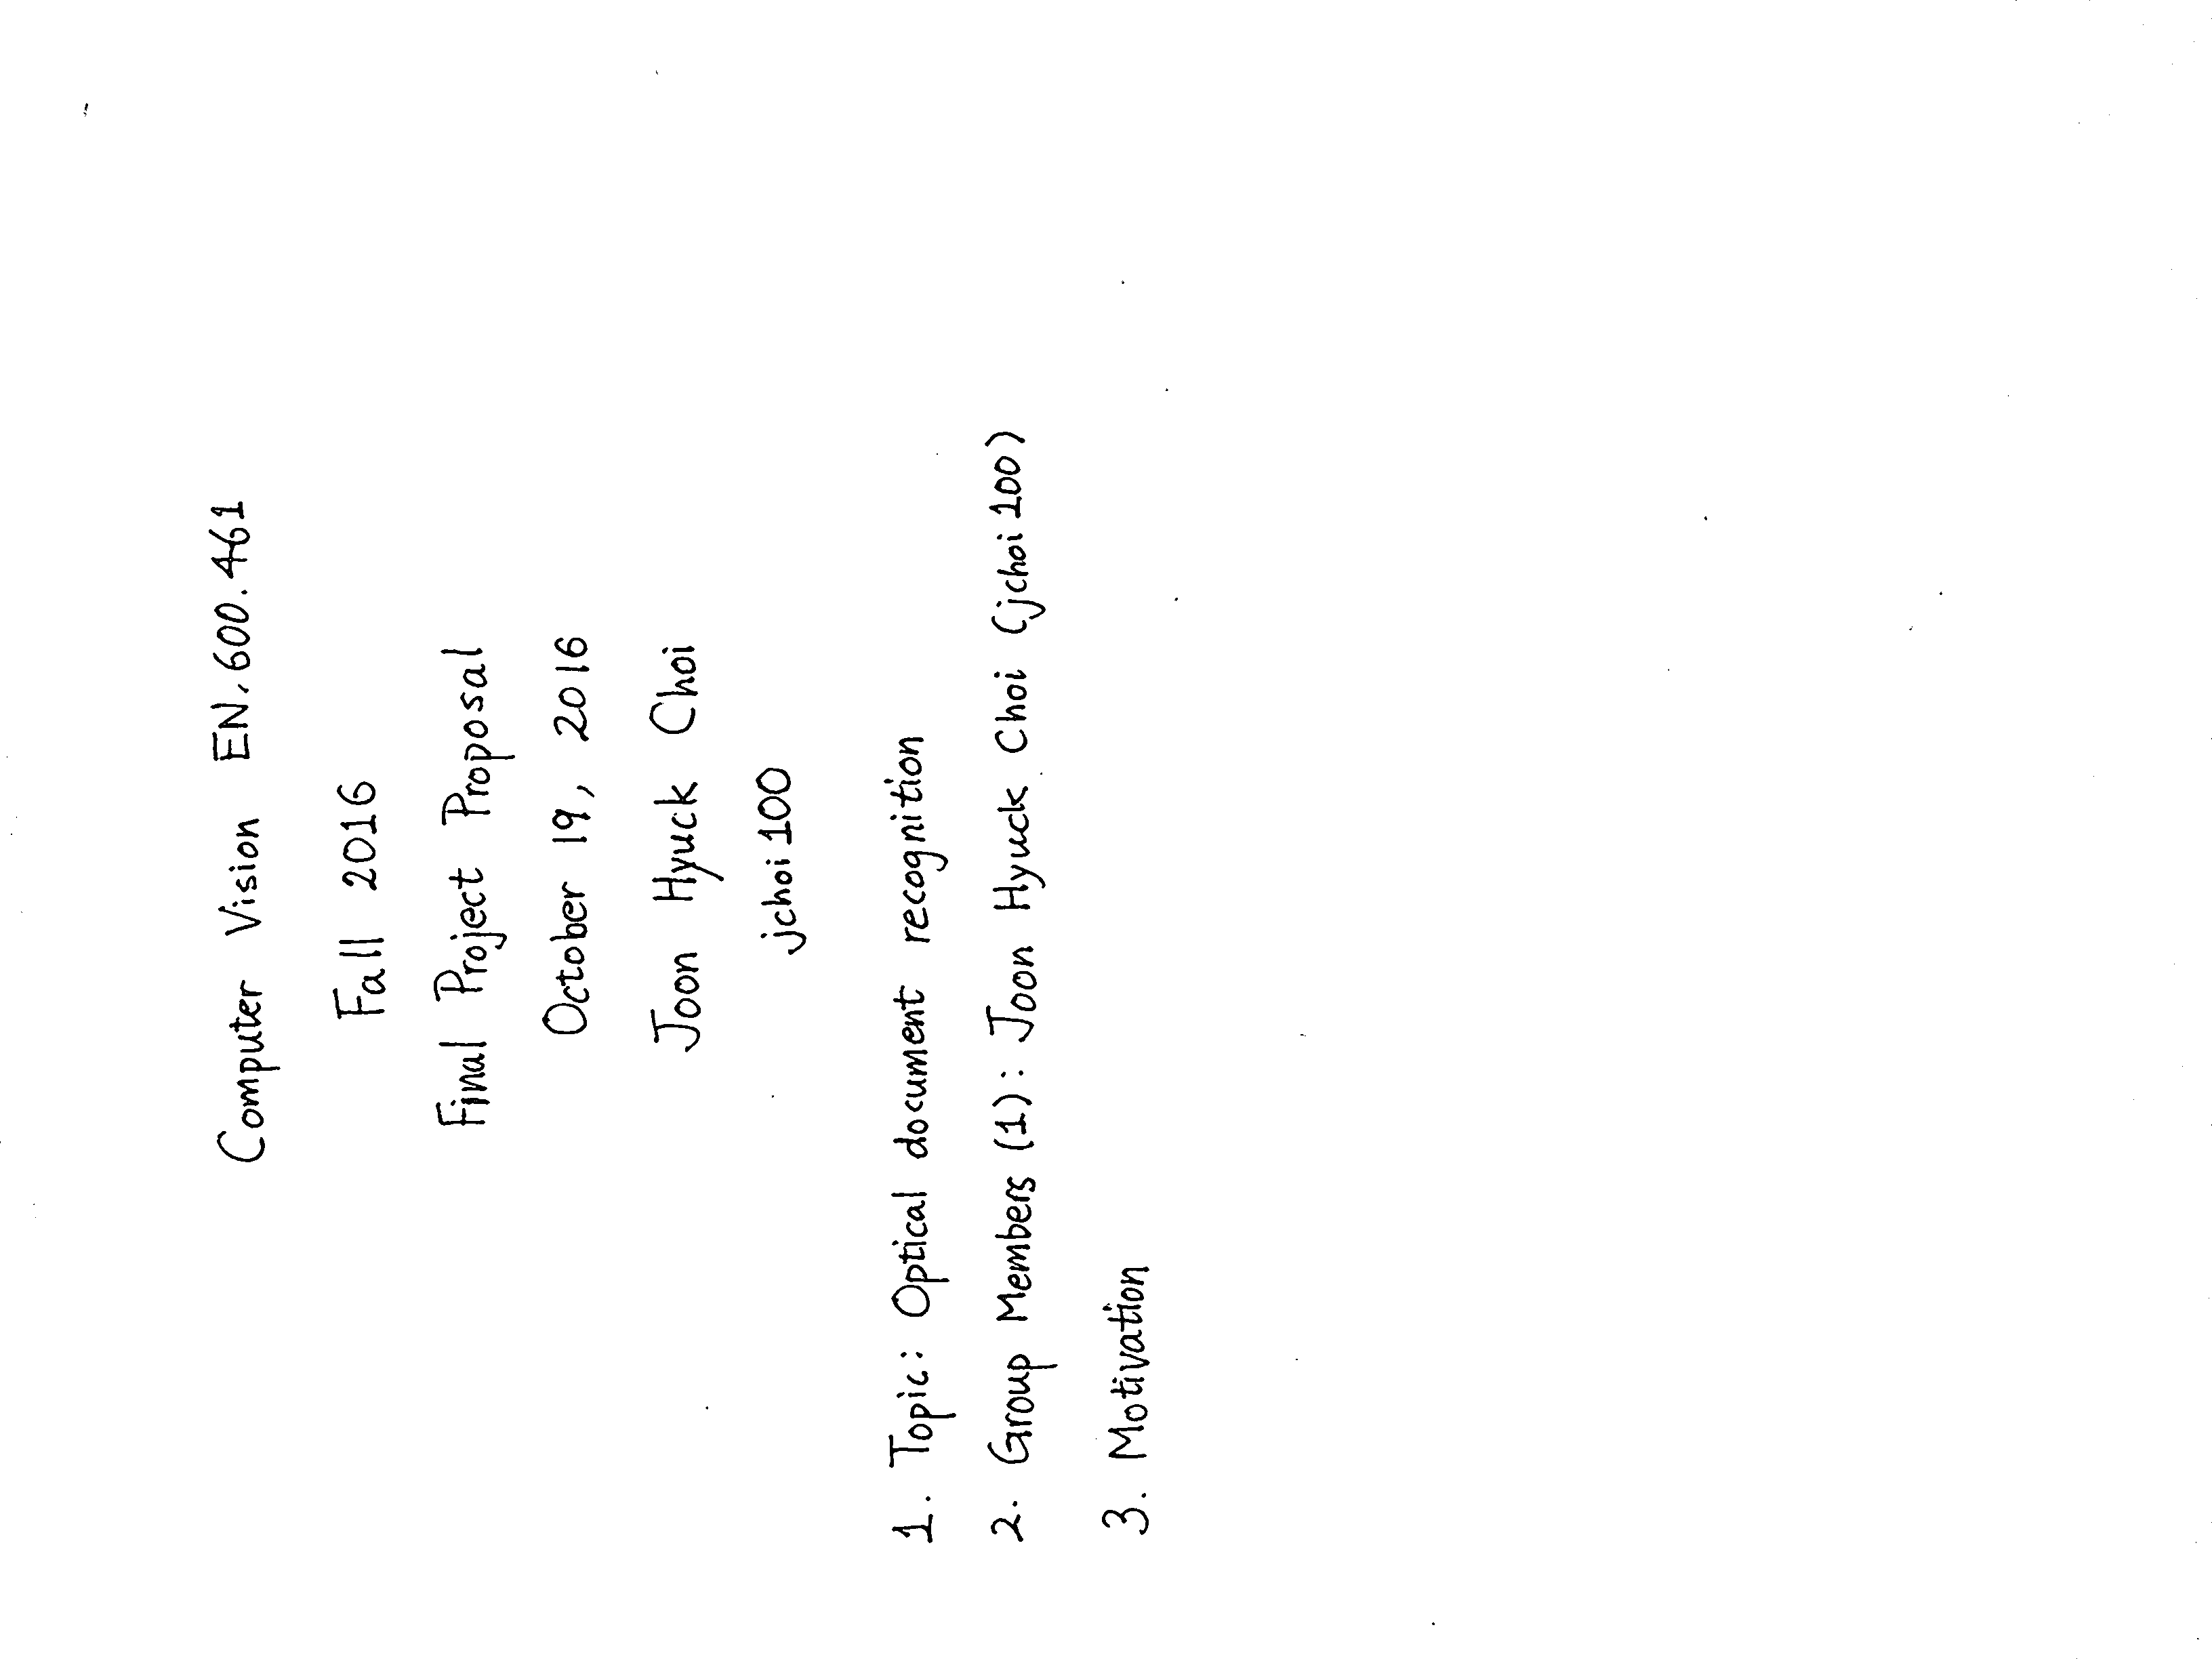 Computer Vision EN.600.461
Fall 2016
Final Project Proposal
October 19, 2016
Joon Hyuck Choi
jchoi100
1. Topic: Optical document recognition
2. Group Members (1): Joon Hyuck Choi (jchoi100)
3. Motivation